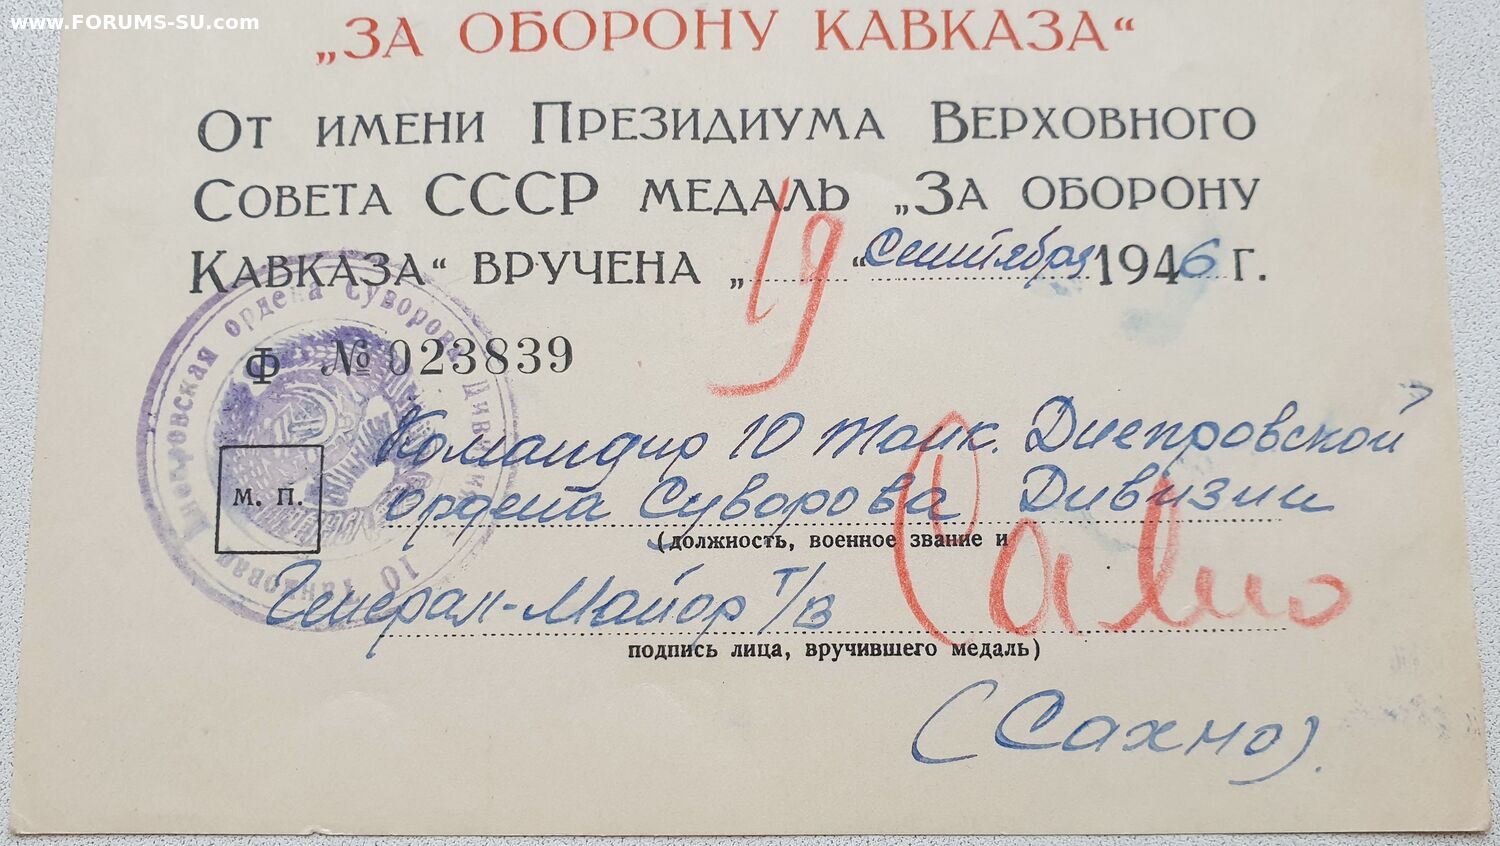 www.FORUMS-SU.com
„ЗА ОБОРОНУ КАВКАЗА“
ОТ ИМЕНИ ПРЕЗИДИУМА ВЕРХОВНОГО
СОВЕТА СССР МЕДАЛЬ „ЗА ОБОРОНУ
КАВКАЗА“ ВРУЧЕНА „19“ Сентября 1946 г.
Ф № 023839
10 танковая Днепровская ордена Суворова дивизия
Командир 10 танк. Днепровской
М. П.
ордена Суворова Дивизии
(должность, военное звание и
Генерал-Майор т/в Сахно
подпись лица, вручившего медаль)
(Сахно).